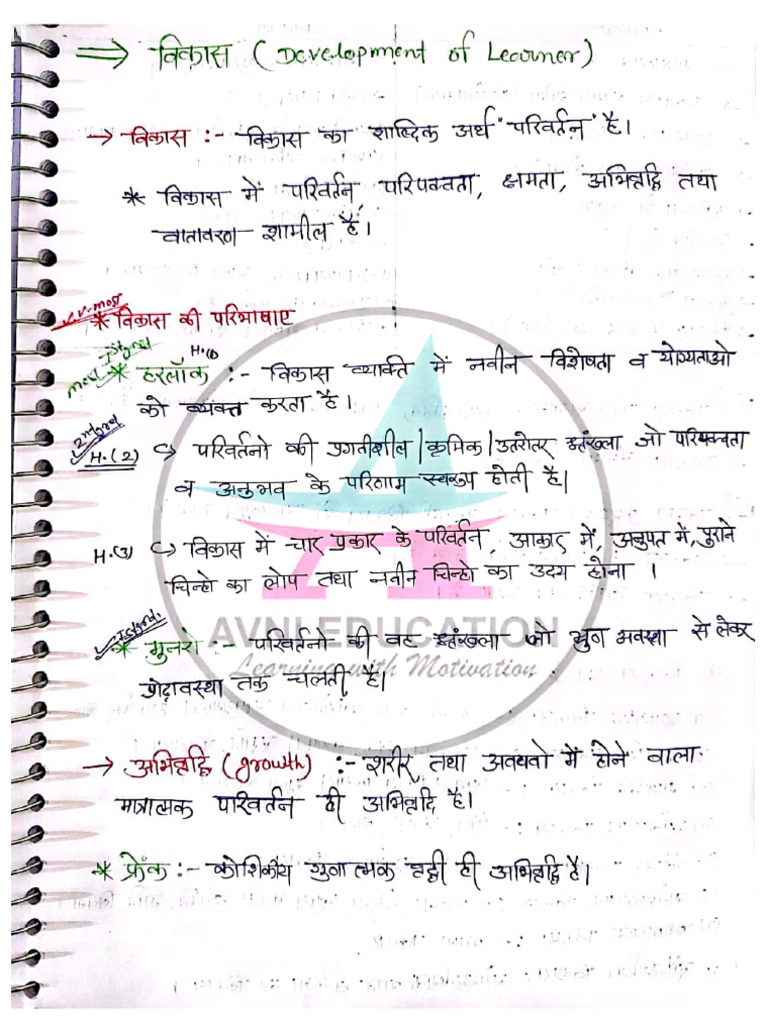 ⇒ विकास (Development of Learner)
→ विकास :- विकास का शाब्दिक अर्थ "परिवर्तन" है।
* विकास में परिवर्तन, परिपक्वता, क्षमता, अभिवृद्धि तथा
वातावरण शामील है।
v-most
* विकास की परिभाषाए
most Ist grad H.(1)
* हरलॉक :- विकास व्यक्ति में नवीन विशेषता व योग्यताओ
को व्यक्त करता है।
2nd grad
H.(2) ↪ परिवर्तनो की प्रगतीशील/क्रमिक/उतरोतर श्रृंखला जो परिपक्वता
व अनुभव के परिणाम स्वरूप होती है।
H.(3) ↪ विकास में चार प्रकार के परिवर्तन, आकार में, अनुपत में, पुराने
चिन्हो का लोप तथा नवीन चिन्हो का उदय होना ।
Ist grad.
* मुनरो :- परिवर्तनो की वह श्रृंखला जो भ्रुण अवस्था से लेकर
प्रोढ़ावस्था तक चलती है।
AVNI EDUCATION
Learning with Motivation
→ अभिवृद्धि (growth) :- शरीर तथा अवयवो में होने वाला
मात्रात्मक परिवर्तन ही अभिवृद्दि है।
* फ्रेंक :- कोशिकीय गुणात्मक वृद्दी ही अभिवृद्दि है।